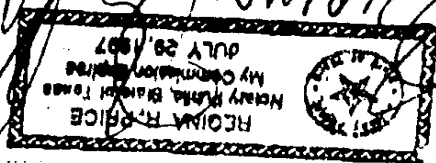 REGINA R. PRICE
Notary Public, State of Texas
My Commission Expires
JULY 29, 1997